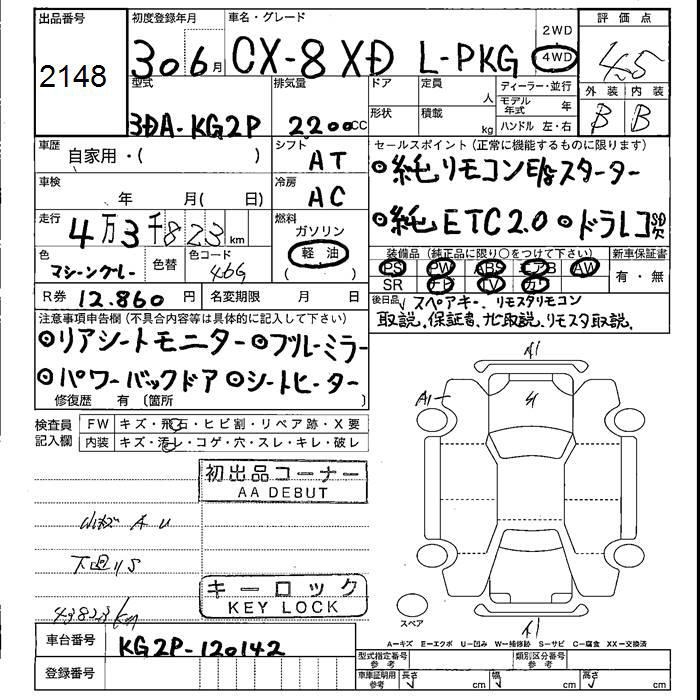 出品番号
初度登録年月
車名・グレード
2WD
評価点
2148
30 6月
CX-8 XD L-PKG
4WD
4.5
型式
排気量
ドア
定員 人
ディーラー・並行
外装 内装
モデル年式 年
B B
3DA-KG2P
2200cc
形状
積載 kg
ハンドル 左・右
車歴
自家用・( )
シフト
AT
セールスポイント(正常に機能するものに限ります)
◎純リモコンE/gスターター
車検
年 月( 日)
冷房
AC
走行
4万3千823km
燃料
ガソリン
軽油
( )
◎純ETC2.0 ◎ドラレコSD欠
色
マシーングレー
色替
色コード
46G
装備品(純正品に限り○をつけて下さい)
新車保証書
PS PW ABS エアB AW
有・無
SR ナビ TV カワ
R券 12.860円
名変期限 月 日
後日品 スペアキー、リモスタリモコン
取説、保証書、ナビ取説、リモスタ取説、
注意事項申告欄(不具合内容等は具体的に記入して下さい)
◎リアシートモニター ◎ブルーミラー
◎パワーバックドア ◎シートヒーター
修復歴 有〔箇所
検査員記入欄
FW キズ・飛石・ヒビ割・リペア跡・X要
内装 キズ・汚レ・コゲ・穴・スレ・キレ・破レ
A1
A1
初出品コーナー
AA DEBUT
キーロック
KEY LOCK
43823km
スペア
A1
A=キズ E=エクボ U=凹み W=補修跡 S=サビ C=腐食 XX=交換済
車台番号
KG2P-120142
登録番号
型式指定番号 参考
類別区分番号 参考
車庫証明用 参考
長さ cm
幅 cm
高さ cm